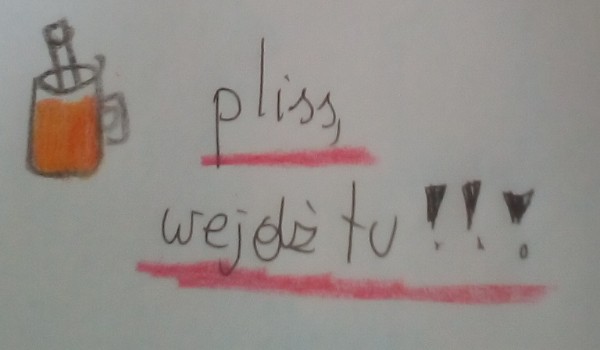 pliss,
wejdź tu!!!